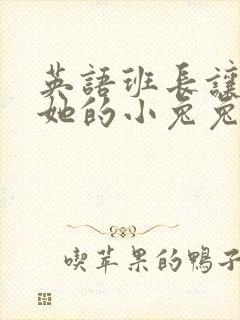 英語班長讓
她的小兔兔
喫苹果的鴨子